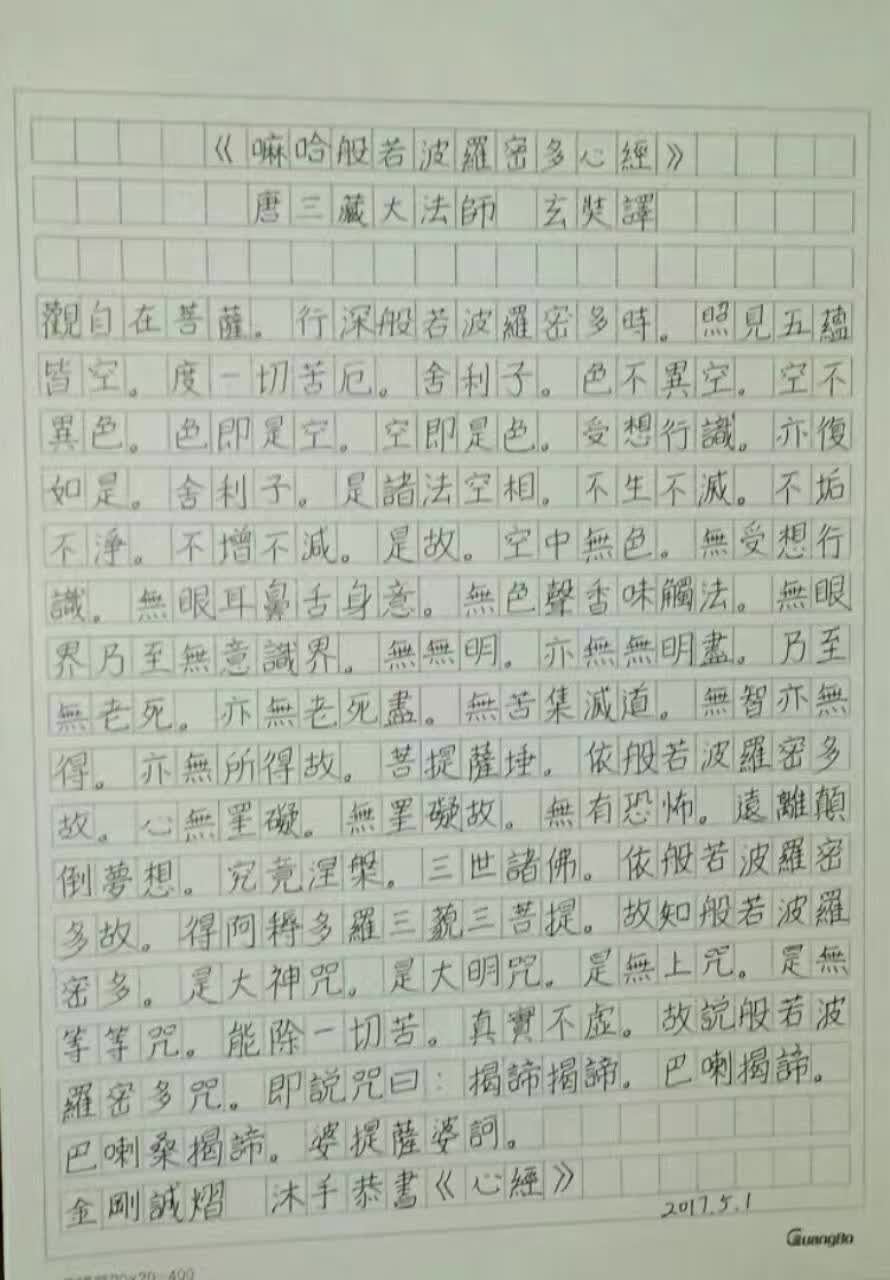 《嘛哈般若波羅密多心經》
唐三藏大法師 玄奘譯
觀自在菩薩。行深般若波羅密多時。照見五蘊
皆空。度一切苦厄。舍利子。色不異空。空不
異色。色即是空。空即是色。受想行識。亦復
如是。舍利子。是諸法空相。不生不滅。不垢
不淨。不增不減。是故。空中無色。無受想行
識。無眼耳鼻舌身意。無色聲香味觸法。無眼
界乃至無意識界。無無明。亦無無明盡。乃至
無老死。亦無老死盡。無苦集滅道。無智亦無
得。亦無所得故。菩提薩埵。依般若波羅密多
故。心無罣礙。無罣礙故。無有恐怖。遠離顛
倒夢想。究竟涅槃。三世諸佛。依般若波羅密
多故。得阿耨多羅三藐三菩提。故知般若波羅
密多。是大神咒。是大明咒。是無上咒。是無
等等咒。能除一切苦。真實不虛。故說般若波
羅密多咒。即說咒曰：揭諦揭諦。巴喇揭諦。
巴喇桑揭諦。婆提薩婆訶。
金剛誠熠 沐手恭書《心經》
2017.5.1
GuangBo